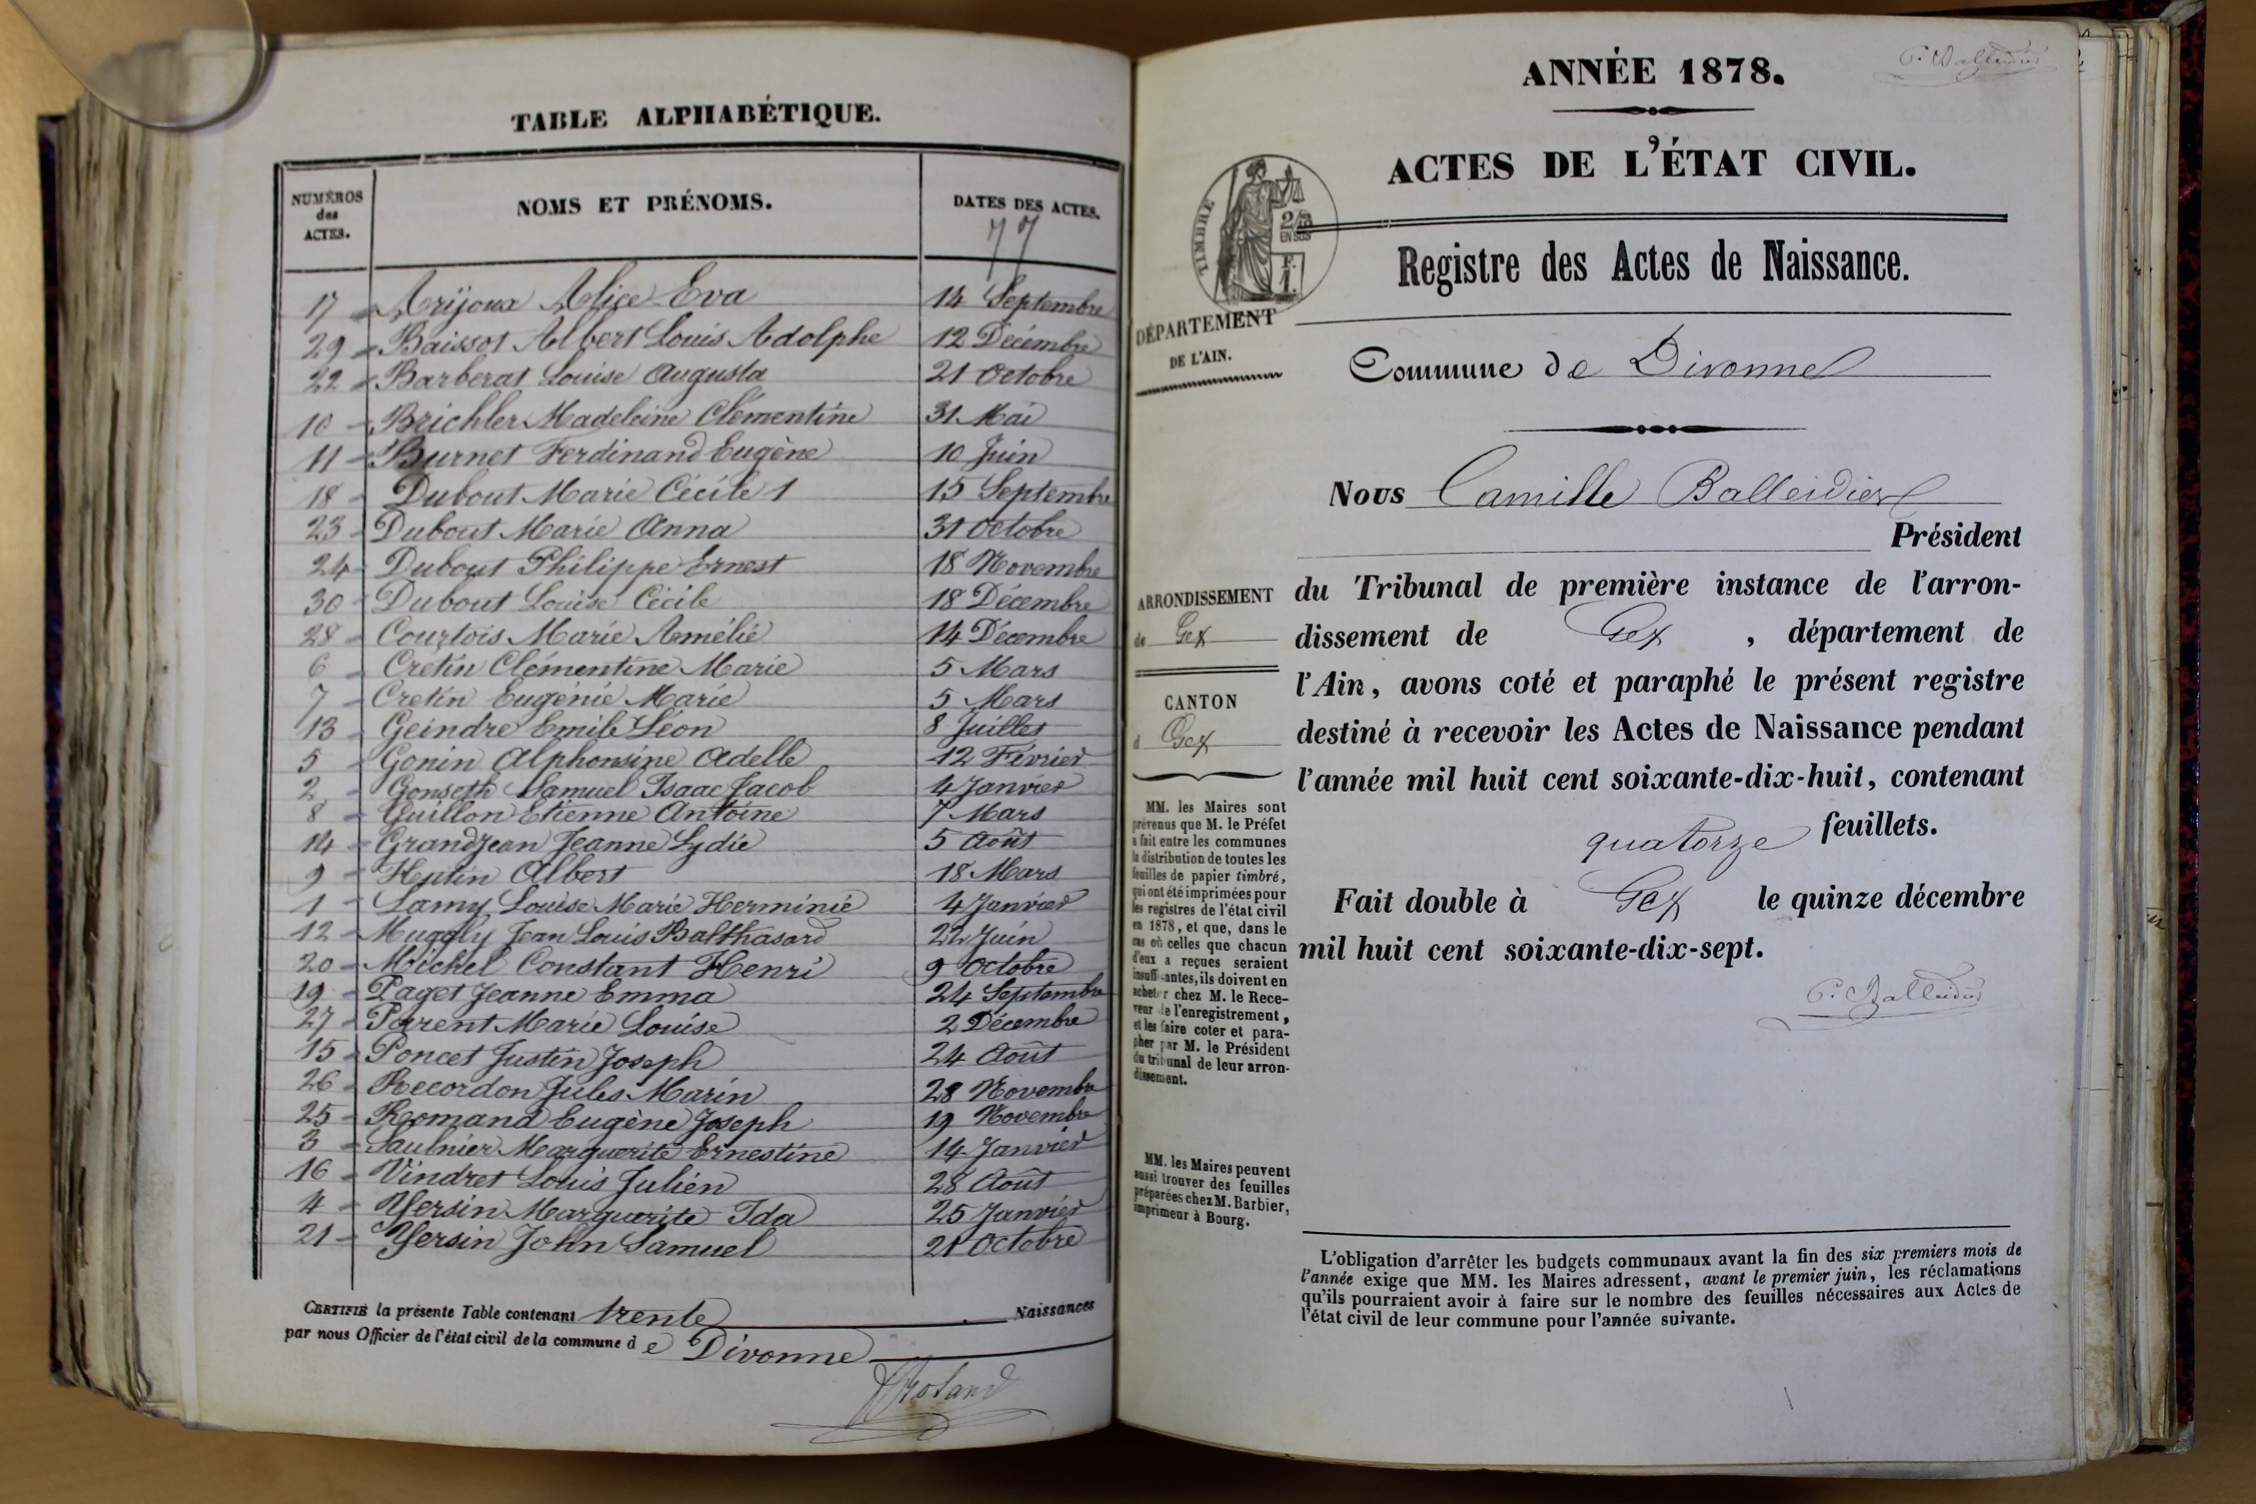 TABLE ALPHABÉTIQUE.
NUMÉROS des ACTES. NOMS ET PRÉNOMS. DATES DES ACTES.
77
17 - Arijoux Alice Eva 14 Septembre
29 - Baissot Albert Louis Adolphe 12 Décembre
22 - Barberat Louise Augusta 21 Octobre
10 - Brichler Madeleine Clémentine 31 Mai
11 - Burnet Ferdinand Eugène 10 Juin
18 - Dubout Marie Cécile 1 15 Septembre
23 - Dubout Marie Anna 31 Octobre
24 - Dubout Philippe Ernest 18 Novembre
30 - Dubout Louise Cécile 18 Décembre
28 - Courtois Marie Amélie 14 Décembre
6 - Cretin Clémentine Marie 5 Mars
7 - Cretin Eugénie Marie 5 Mars
13 - Geindre Emile Léon 8 Juillet
5 - Gonin Alphonsine Adelle 12 Février
2 - Gonseth Samuel Isaac Jacob 4 Janvier
8 - Guillon Etienne Antoine 7 Mars
14 - Grandjean Jeanne Lydie 5 Août
9 - Albert 18 Mars
1 - Lamy Louise Marie Herminie 4 Janvier
12 - Muggly Jean Louis Balthasard 22 Juin
20 - Michel Constant Henri 9 Octobre
19 - Paget Jeanne Emma 24 Septembre
27 - Parent Marie Louise 2 Décembre
15 - Poncet Justin Joseph 24 Août
26 - Recordon Jules Marin 28 Novembre
25 - Romand Eugène Joseph 19 Novembre
3 - Saulnier Marguerite Ernestine 14 Janvier
16 - Vindret Louis Julien 28 Août
4 - Yersin Marguerite Ida 25 Janvier
21 - Yersin John Samuel 21 Octobre
CERTIFIÉ la présente Table contenant trente Naissances
par nous Officier de l'état civil de la commune d e Divonne
ANNÉE 1878.
ACTES DE L'ÉTAT CIVIL.
TIMBRE
2/10
EN SUS
F.
1.
Registre des Actes de Naissance.
DÉPARTEMENT
DE L'AIN.
Commune de Divonne
Nous Camille Balleidier
Président
du Tribunal de première instance de l'arron-
dissement de Gex, département de
l'Ain, avons coté et paraphé le présent registre
destiné à recevoir les Actes de Naissance pendant
l'année mil huit cent soixante-dix-huit, contenant
quatorze feuillets.
Fait double à Gex le quinze décembre
mil huit cent soixante-dix-sept.
C. Balleidier
ARRONDISSEMENT
de Gex
CANTON
d Gex
MM. les Maires sont
prévenus que M. le Préfet
a fait entre les communes
la distribution de toutes les
feuilles de papier timbré,
qui ont été imprimées pour
les registres de l'état civil
en 1878, et que, dans le
cas où celles que chacun
d'eux a reçues seraient
insuffisantes, ils doivent en
acheter chez M. le Rece-
veur de l'enregistrement,
et les faire coter et para-
pher par M. le Président
du tribunal de leur arron-
dissement.
MM. les Maires peuvent
aussi trouver des feuilles
préparées chez M. Barbier,
imprimeur à Bourg.
L'obligation d'arrêter les budgets communaux avant la fin des six premiers mois de
l'année exige que MM. les Maires adressent, avant le premier juin, les réclamations
qu'ils pourraient avoir à faire sur le nombre des feuilles nécessaires aux Actes de
l'état civil de leur commune pour l'année suivante.